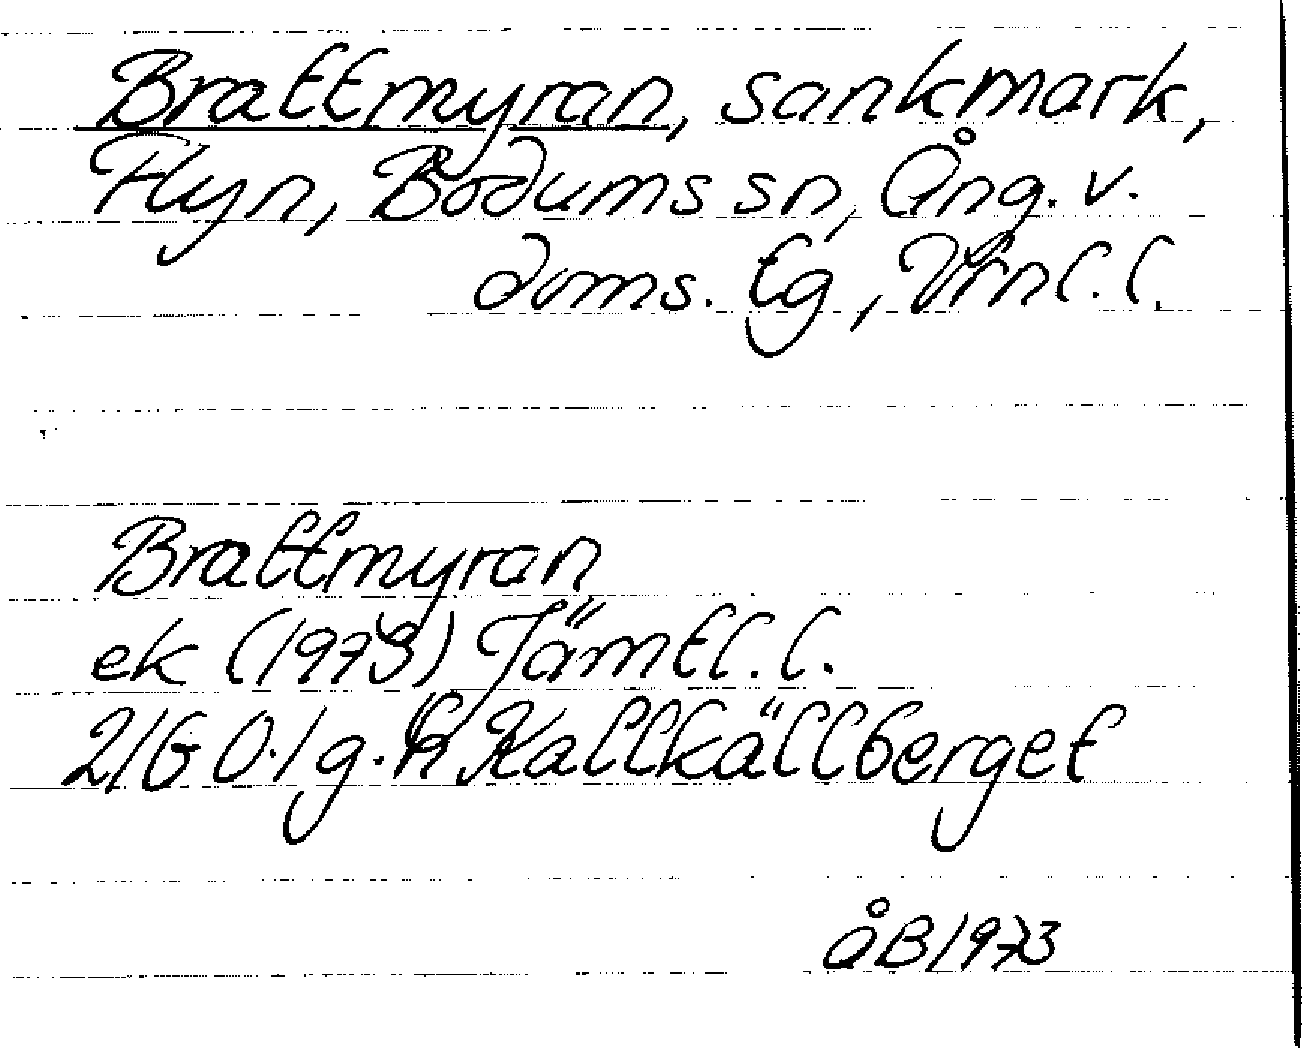 Brattmyran, sankmark,
Flyn, Bodums sn, Ång. v.
doms. lg, Vrnl. l.
Brattmyran
ek (1973) Jämtl. l.
21G 0.1 g. K Kallkällberget
ÅB 1973